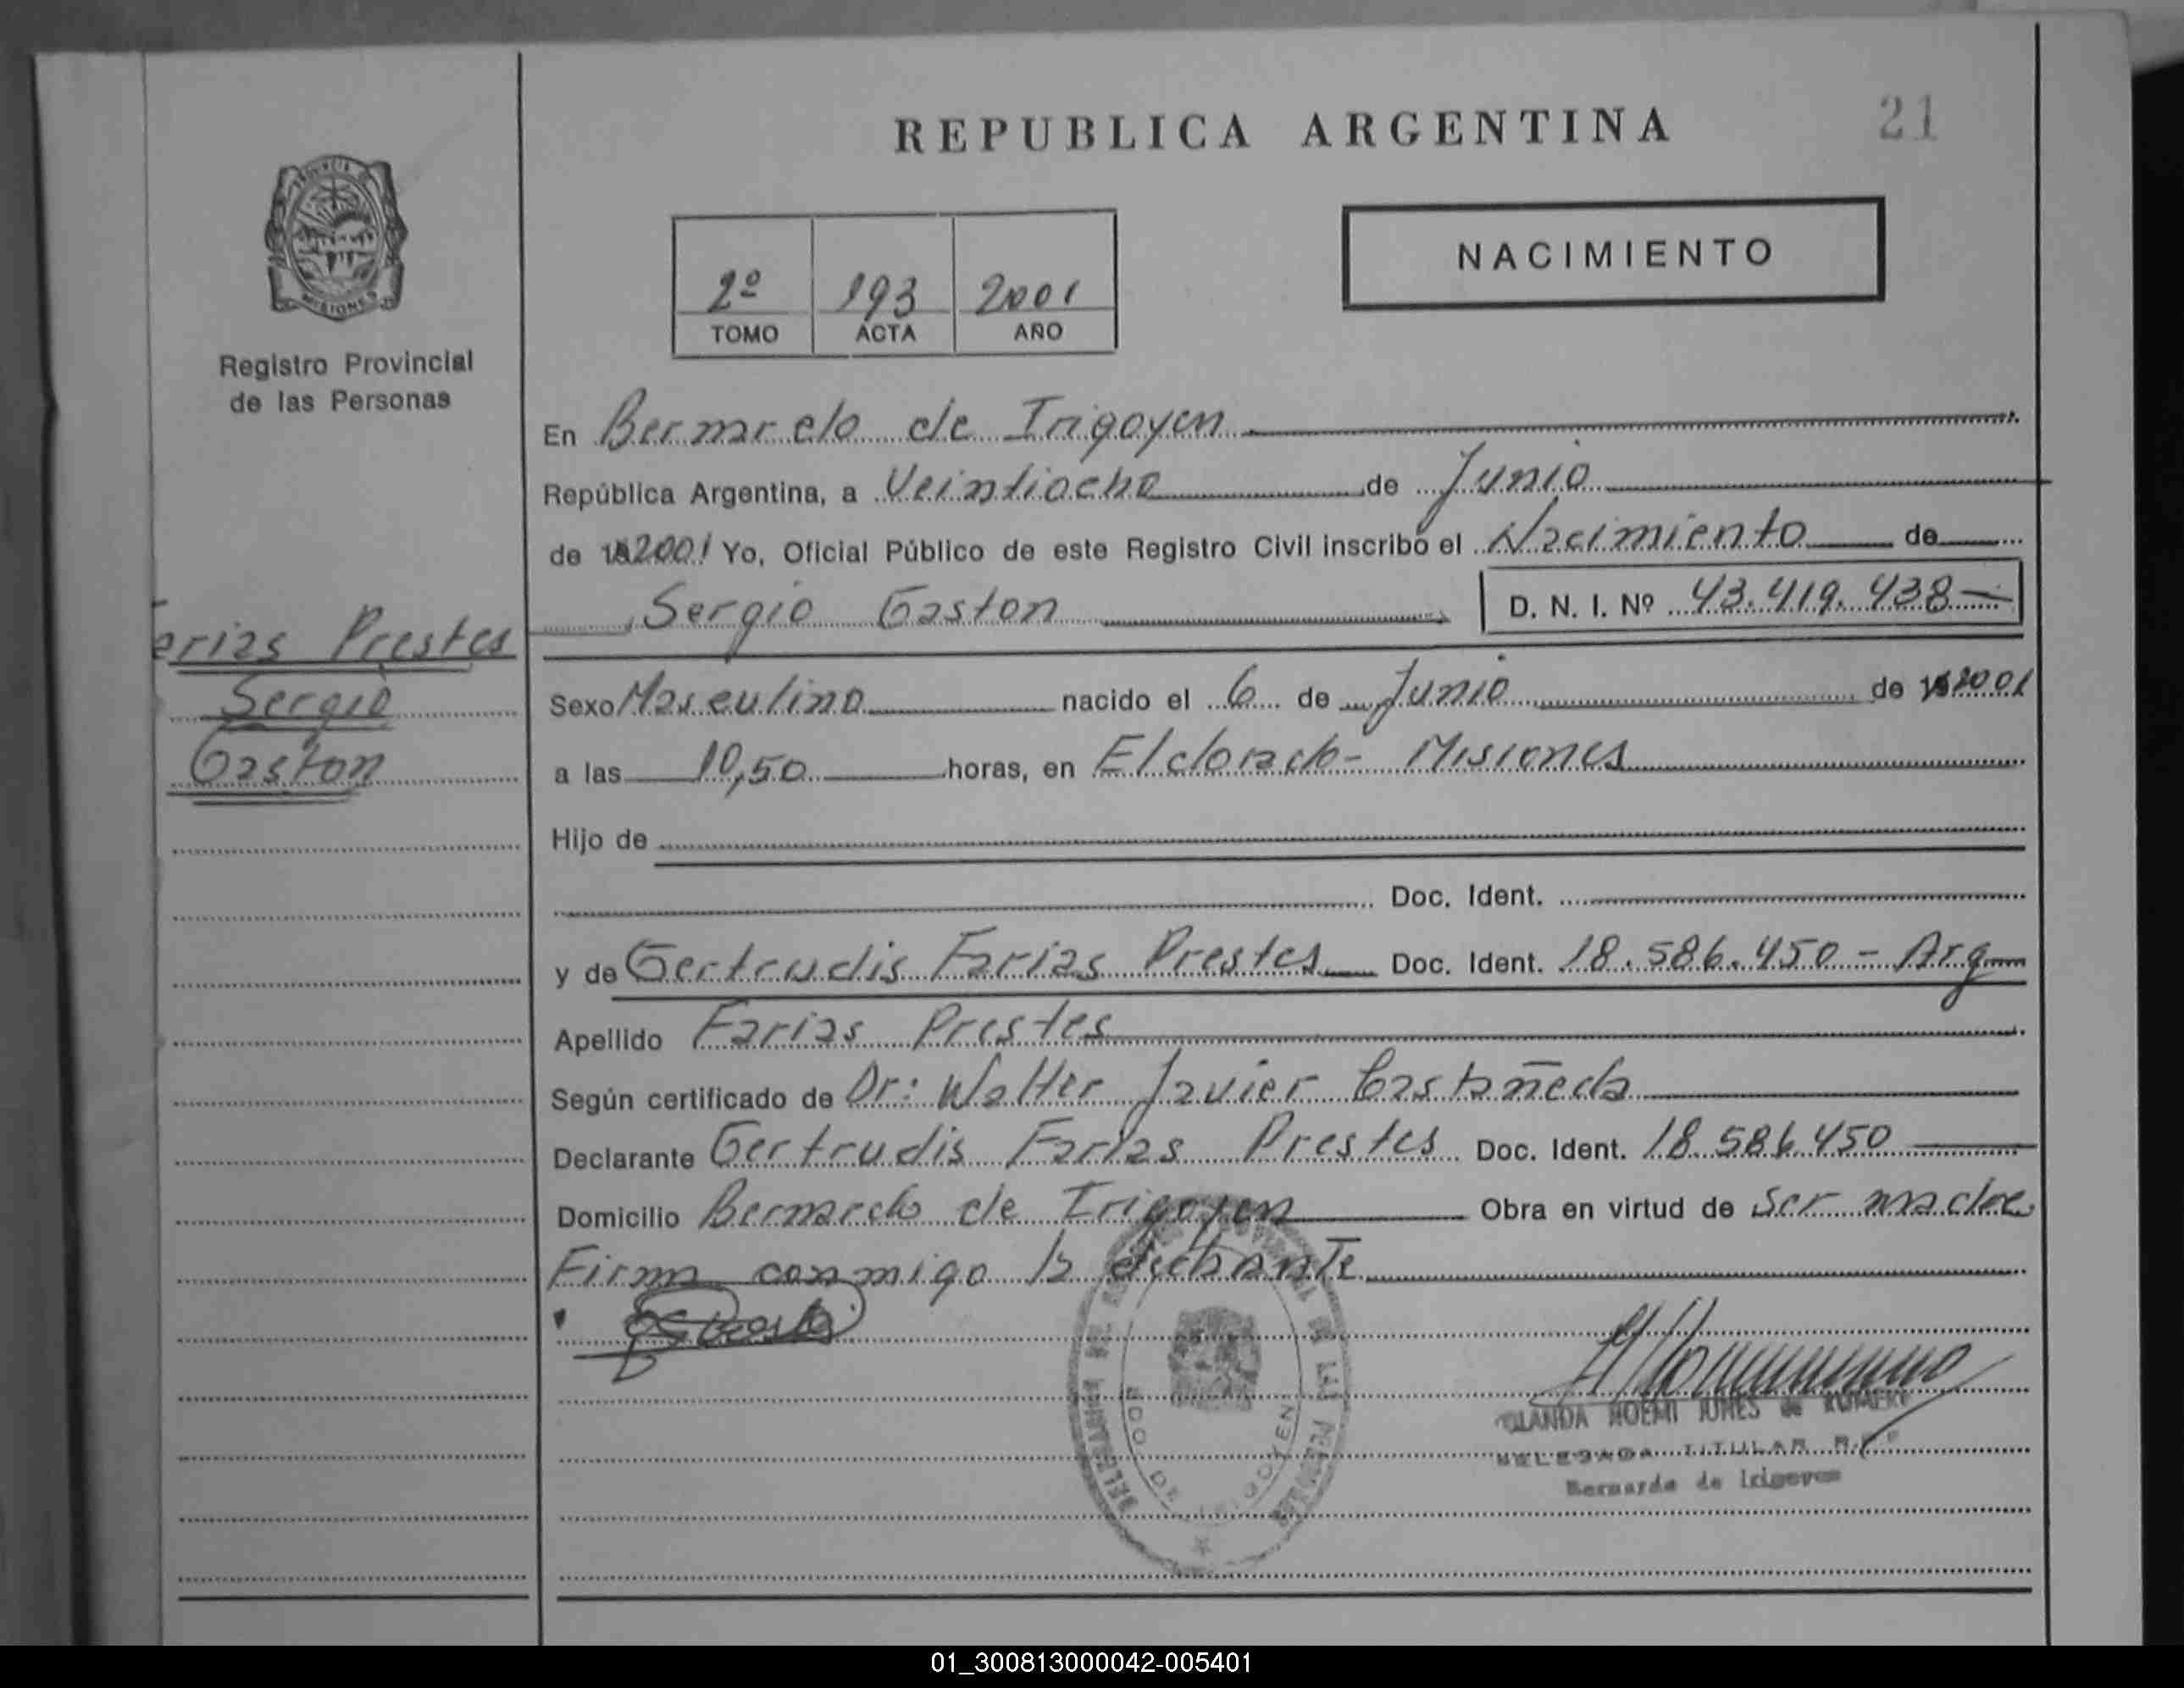 REPUBLICA ARGENTINA
21
PROVINCIA DE
MISIONES
Registro Provincial
de las Personas
2º 193 2001
TOMO ACTA AÑO
NACIMIENTO
En Bernardo de Irigoyen
República Argentina, a Veintiocho de Junio
de 2001 Yo, Oficial Público de este Registro Civil inscribo el Nacimiento de
Sergio Gaston D. N. I. Nº 43.419.438
arias Prestes
Sergio
Gaston
Sexo Masculino nacido el 6 de Junio de 2001
a las 10,50 horas, en Eldorado - Misiones
Hijo de
Doc. Ident.
y de Gertrudis Farias Prestes Doc. Ident. 18.586.450 - Arg
Apellido Farias Prestes
Según certificado de Dr: Walter Javier Castañeda
Declarante Gertrudis Farias Prestes Doc. Ident. 18.586.450
Domicilio Bernardo de Irigoyen Obra en virtud de ser madre
Firma conmigo la declarante
OLANDA NOEMI JUNES de ROMERO
DELEGADA TITULAR R.P.P
Bernardo de Irigoyen
BDO DE IRIGOYEN
01_300813000042-005401